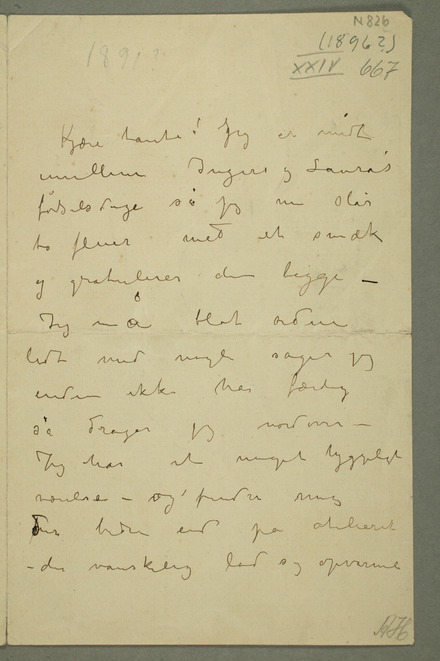 N 826
(1896?)
1891?
XXIV 667
Kjære tante! Jeg er midt
mellem Ingers og Lauras
fødselsdage så jeg nu slår
to fluer med et smæk
og gratulerer dem begge —
Jeg må blot ordne
lidt med nogle sager jeg
endnu ikke har færdig
så drager jeg nordover —
Jeg har et meget hyggeligt
værelse — og finder mig
der bedre end på atelieret
— der vanskelig lod sig opvarme